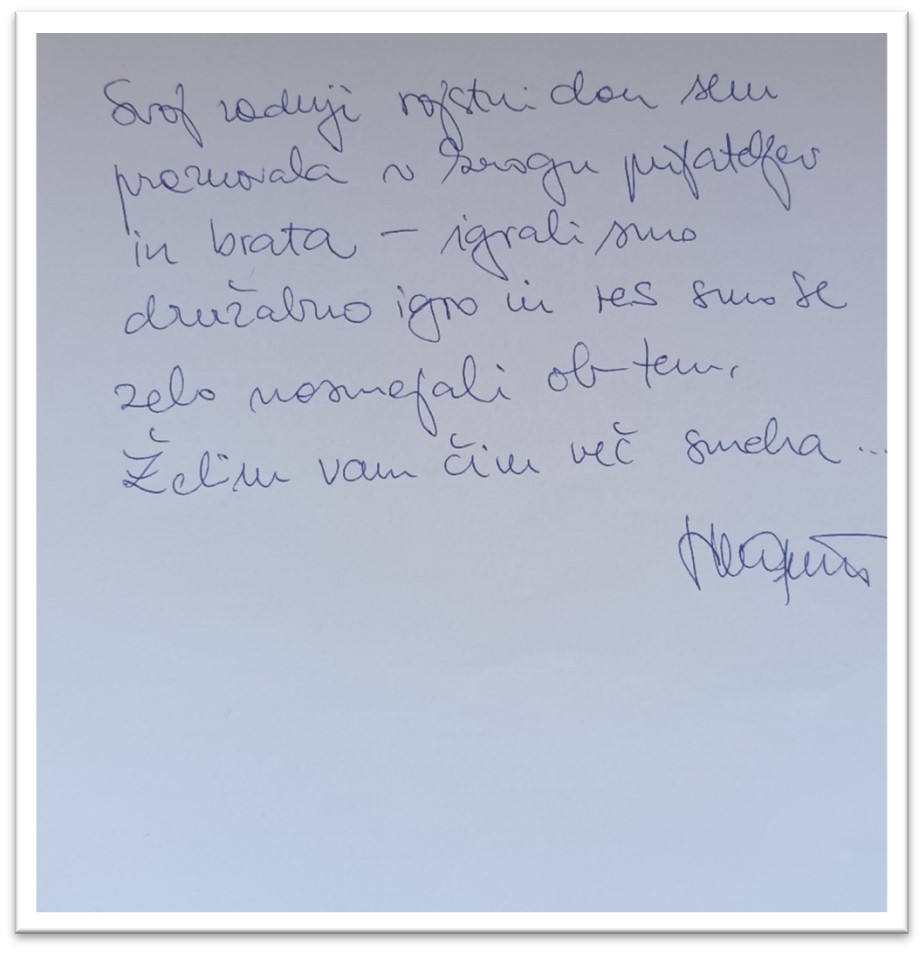 Svoj zadnji rojstni dan sem
praznovala v krogu prijateljev
in brata – igrali smo
družabno igro in res smo se
zelo nasmejali ob tem.
Želim vam čim več smeha ...